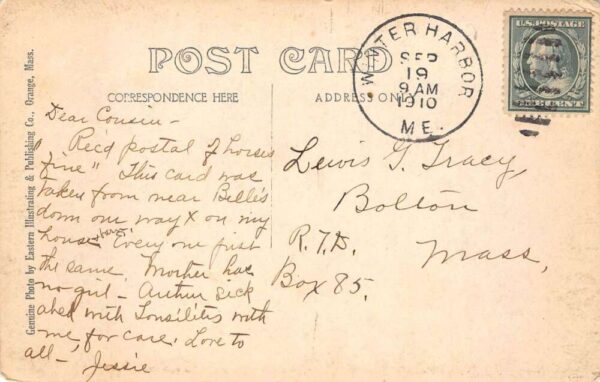 POST CARD
CORRESPONDENCE HERE
ADDRESS ONLY
WINTER HARBOR
SEP
19
9 AM
1910
ME.
U.S. POSTAGE
ONE CENT
Genuine Photo by Eastern Illustrating & Publishing Co., Orange, Mass.
Dear Cousin -
Rec'd postal of horses
"fine" This card was
taken from near Belle's
down our way X on my
house. Every one just
the same. Mother has
no girl - Arthur sick
abed with Tonsilitis with
me, for care. Love to
all - Jessie
Lewis G. Tracy,
Bolton
R.F.D. Mass,
Box 85.